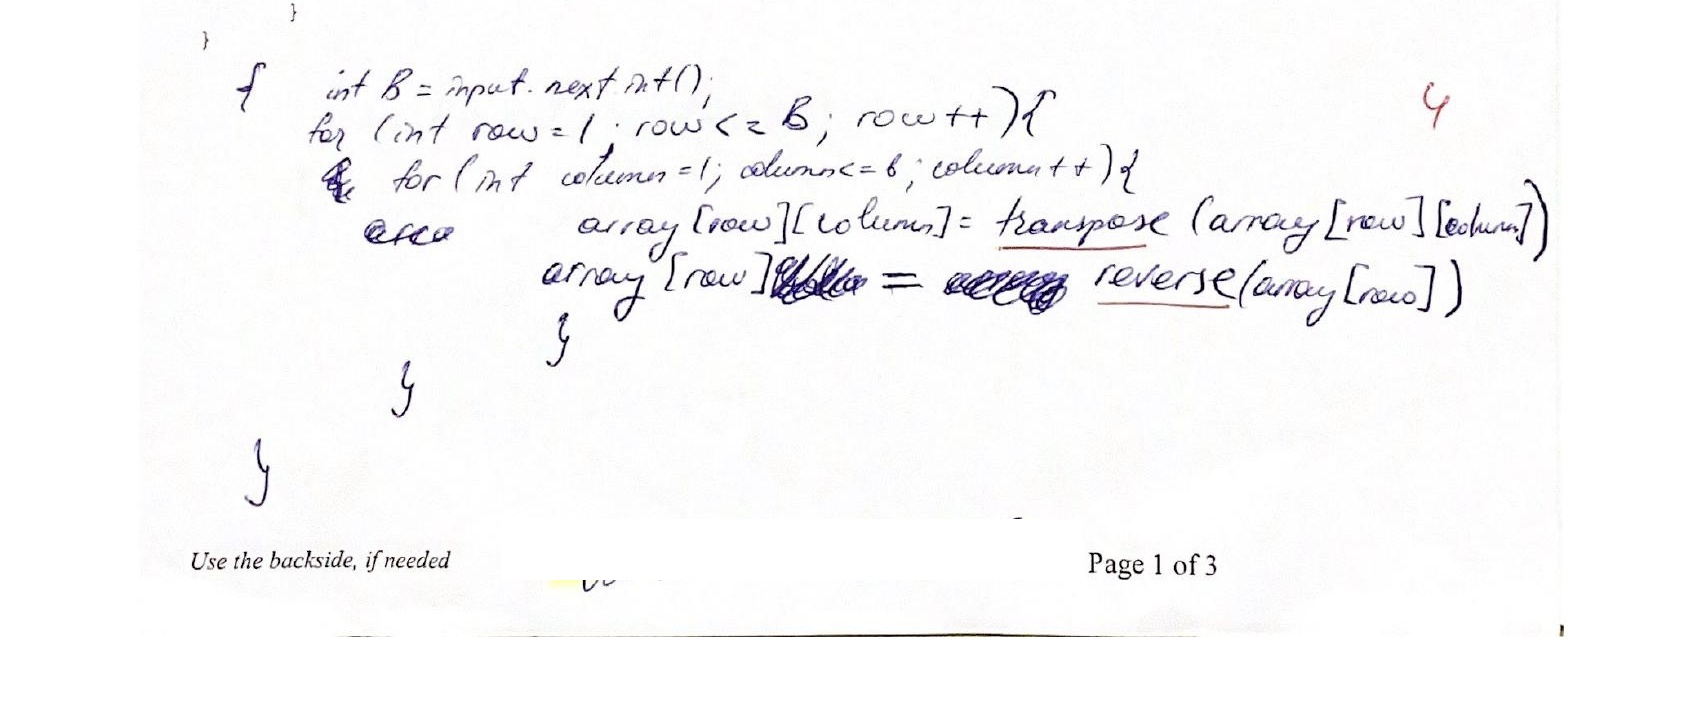 }
}
{ int B = input.next int();
for (int row = 1; row <= B; row ++){
for (int column = 1; column <= B; column ++){
array [row][column] = transpose (array [row] [column])
array [row] = reverse(array [row])
}
}
}
4
Use the backside, if needed
Page 1 of 3